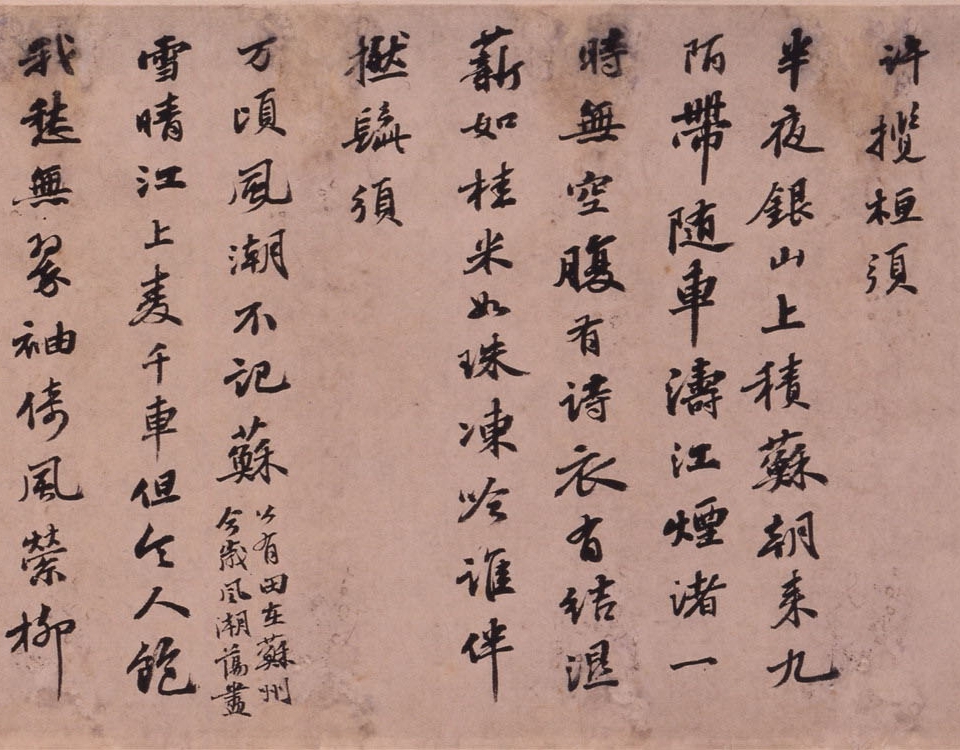 許攬桓須
半夜銀山上積蘇朝来九
陌帶随車濤江煙渚一
時無空腹有詩衣有結湿
薪如桂米如珠凍吟誰伴
撚髭須
万頃風潮不記蘇
公有田在蘇州
今歲風潮蕩盡
雪晴江上麦千車但令人飽
我愁無翠袖倚風縈柳